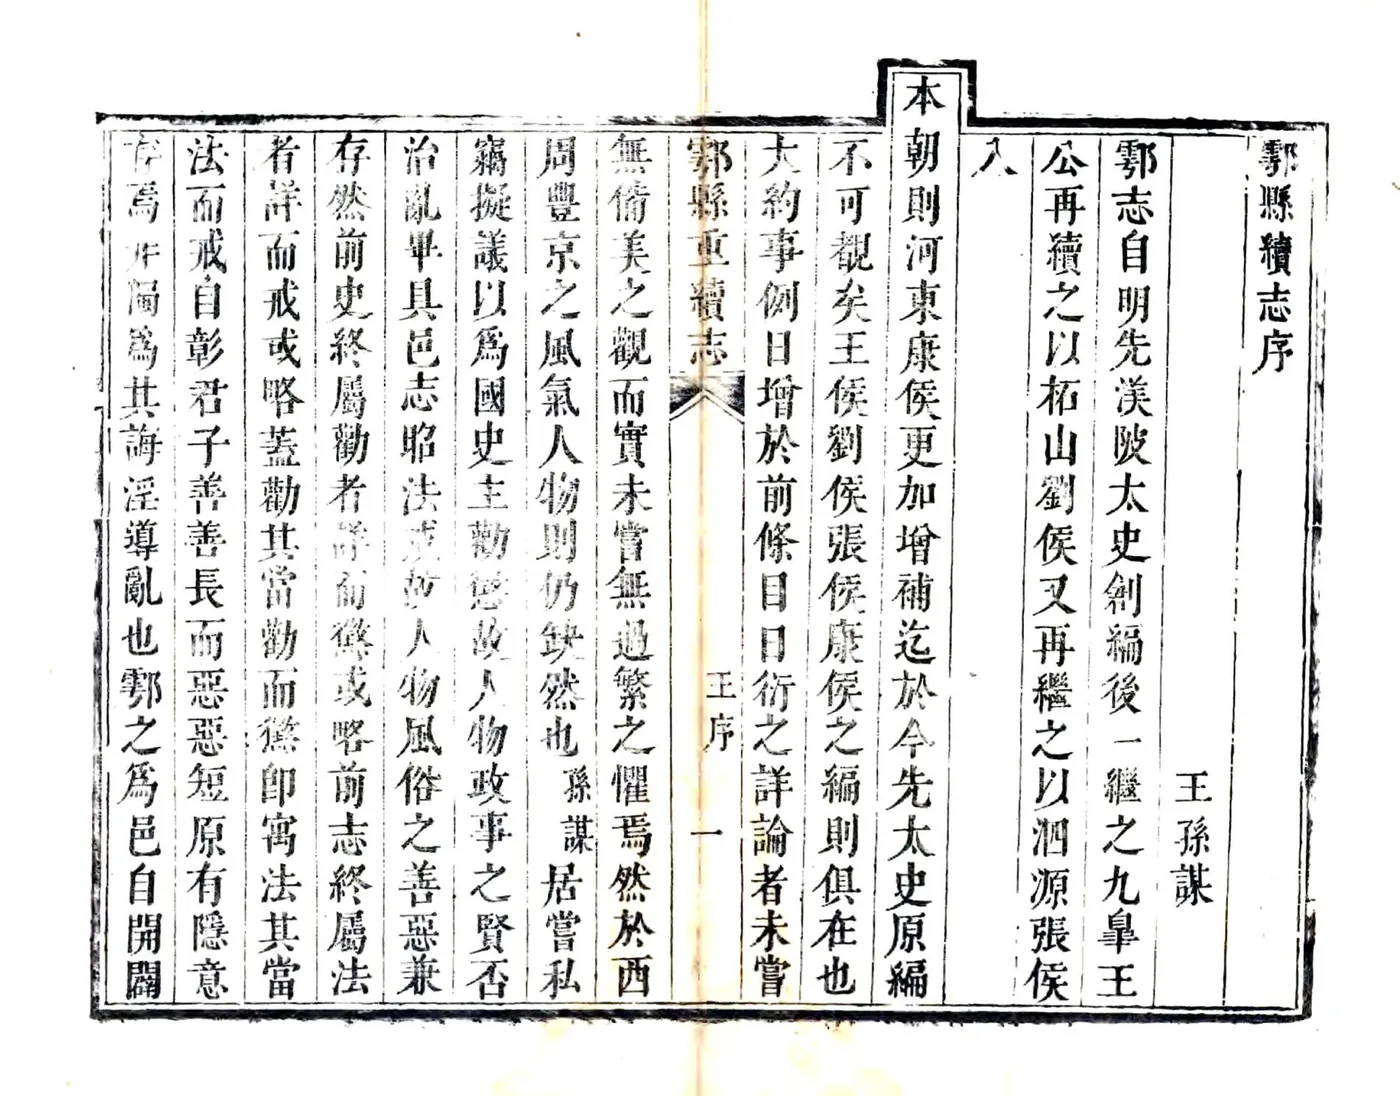 鄠縣續志序
王孫謀
鄠志自明先渼陂太史創編後一繼之九臯王
公再續之以柘山劉侯又再繼之以泗源張侯
入
本朝則河東康侯更加增補迄於今先太史原編
不可覩矣王侯劉侯張侯康侯之編則俱在也
大約事例日增於前條目日衍之詳論者未嘗
鄠縣重續志 王序 一
無備美之觀而實未嘗無過繁之懼焉然於西
周豐京之風氣人物則仍缺然也孫謀居嘗私
竊擬議以爲國史主勸懲故人物政事之賢否
治亂畢具邑志昭法戒故人物風俗之善惡兼
存然前史終屬勸者詳而懲或略前志終屬法
者詳而戒或略蓋勸其當勸而懲卽寓法其當
法而戒自彰君子善善長而惡惡短原有隱意
存焉非濁爲其誨淫導亂也鄠之爲邑自開闢